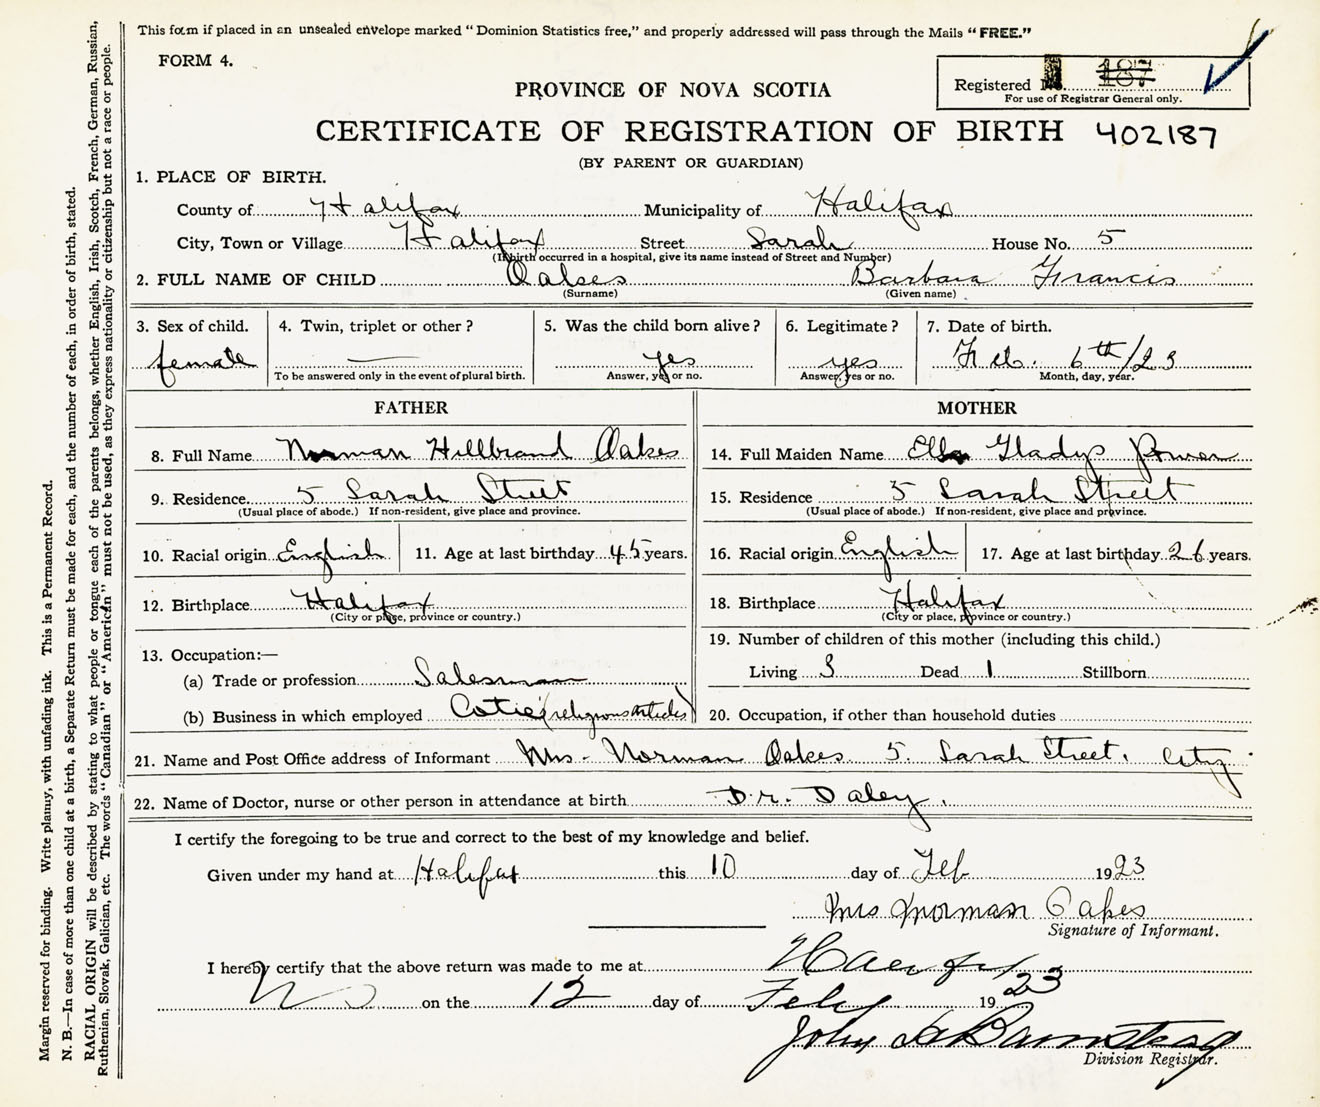 This form if placed in an unsealed envelope marked "Dominion Statistics free," and properly addressed will pass through the Mails "FREE."
FORM 4.
Registered No. 187
For use of Registrar General only.
PROVINCE OF NOVA SCOTIA
CERTIFICATE OF REGISTRATION OF BIRTH 402187
(BY PARENT OR GUARDIAN)
1. PLACE OF BIRTH.
County of Halifax Municipality of Halifax
City, Town or Village Halifax Street Sarah House No. 5
(If birth occurred in a hospital, give its name instead of Street and Number)
2. FULL NAME OF CHILD Oakes Barbara Francis
(Surname) (Given name)
3. Sex of child. 4. Twin, triplet or other? 5. Was the child born alive? 6. Legitimate? 7. Date of birth.
female — yes yes Feb. 6th/23
To be answered only in the event of plural birth. Answer, yes or no. Answer, yes or no. Month, day, year.
FATHER
8. Full Name Norman Hillbrand Oakes
9. Residence 5 Sarah Street
(Usual place of abode.) If non-resident, give place and province.
10. Racial origin English 11. Age at last birthday 45 years.
12. Birthplace Halifax
(City or place, province or country.)
13. Occupation:—
(a) Trade or profession Salesman
(b) Business in which employed (religious articles)
MOTHER
14. Full Maiden Name Ella Gladys Power
15. Residence 5 Sarah Street
(Usual place of abode.) If non-resident, give place and province.
16. Racial origin English 17. Age at last birthday 26 years.
18. Birthplace Halifax
(City or place, province or country.)
19. Number of children of this mother (including this child.)
Living 3 Dead 1 Stillborn
20. Occupation, if other than household duties
21. Name and Post Office address of Informant Mrs. Norman Oakes 5 Sarah Street, City
22. Name of Doctor, nurse or other person in attendance at birth Dr. Daley.
I certify the foregoing to be true and correct to the best of my knowledge and belief.
Given under my hand at Halifax this 10 day of Feb 1923
Mrs Norman Oakes
Signature of Informant.
I hereby certify that the above return was made to me at Halifax
NS on the 12 day of Feby 1923
John
Division Registrar.
Margin reserved for binding. Write plainly, with unfading ink. This is a Permanent Record.
N. B.—In case of more than one child at a birth, a Separate Return must be made for each, and the number of each, in order of birth, stated.
RACIAL ORIGIN will be described by stating to what people or tongue each of the parents belongs, whether English, Irish, Scotch, French, German, Russian,
Ruthenian, Slovak, Galician, etc. The words "Canadian" or "American" must not be used, as they express nationality or citizenship but not a race or people.